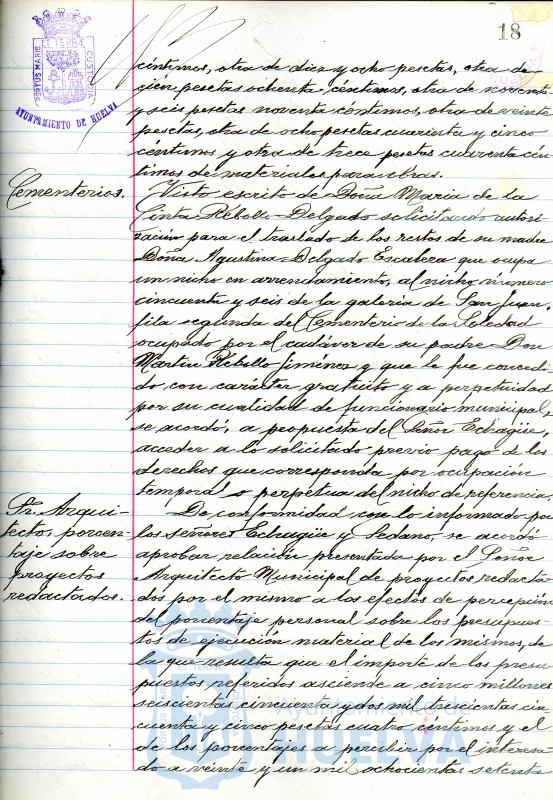 18
PORTUS MARIS ET TERRAE CUSTODIA
AYUNTAMIENTO DE HUELVA
céntimos, otra de diez y ocho pesetas, otra de
cien pesetas ochenta céntimos, otra de noventa
y seis pesetas noventa céntimos, otra de veinte
pesetas, otra de ocho pesetas cuarenta y cinco
céntimos y otra de trece pesetas cuarenta cén-
timos de materiales para obras.
Cementerios.
Visto escrito de Doña Maria de la
Cinta Rebollo-Delgado solicitando autori-
zación para el traslado de los restos de su madre
Doña Agustina-Delgado Escalera que ocupa
un nicho en arrendamiento, al nicho número
cincuenta y seis de la galeria de San Juan,
fila segunda del Cementerio de la Soledad
ocupado por el cadáver de su padre Don
Martin Rebollo Jiménez y que le fue concedi-
do con carácter gratuito y a perpetuidad
por su cualidad de funcionario municipal,
se acordó, a propuesta del Señor Echagüe,
acceder a lo solicitado previo pago de los
derechos que corresponda por ocupación
temporal o perpetua del nicho de referencia.
Sr. Arqui-
tecto, porcen-
taje sobre
proyectos
redactados.
De conformidad con lo informado por
los señores Echagüe y Sedano, se acordó
aprobar relación presentada por el Señor
Arquitecto Municipal de proyectos redacta-
dos por el mismo a los efectos de percepción
del porcentaje personal sobre los presupues-
tos de ejecución material de los mismos, de
la que resulta que el importe de los presu-
puestos referidos asciende a cinco millones
seiscientas cincuenta y dos mil trescientas cin-
cuenta y cinco pesetas cuatro céntimos y el
de los porcentajes a percibir por el interesa-
do a veinte y un mil ochocientas setenta
Ayuntamiento de
HUELVA